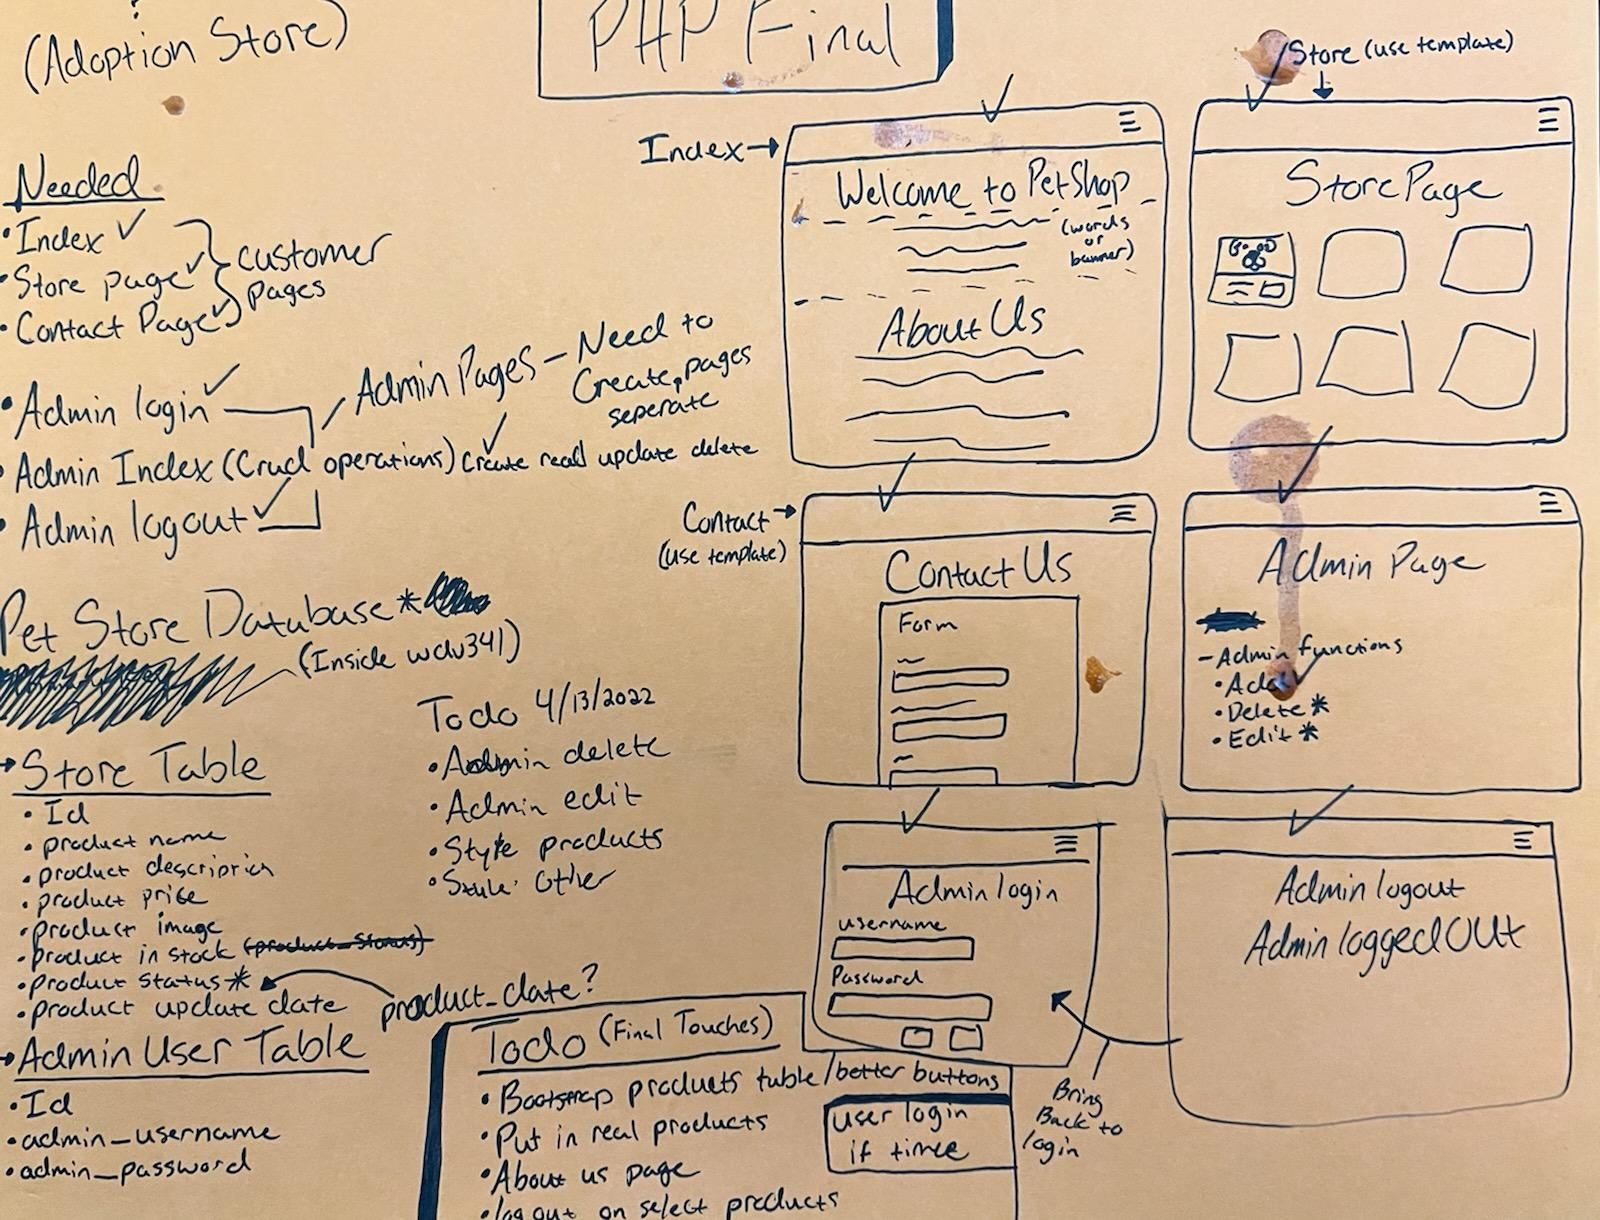 (Adoption Store)
PHP Final
Needed
• Index ✓
• Store page ✓
• Contact Page ✓
customer
pages
• Admin login ✓
• Admin Index (Crud operations) Create read update delete
• Admin logout ✓
Admin Pages – Need to
Create pages
seperate
Pet Store Database *
(Inside wdv341)
→ Store Table
• Id
• product name
• product description
• product price
• product image
• product in stock (product_status)
• product status *
• product update date
product_date?
→ Admin User Table
• Id
• admin_username
• admin_password
Todo 4/13/2022
• Admin delete
• Admin edit
• Style products
• Style other
Todo (Final Touches)
• Bootstrap products table/better buttons
• Put in real products
• About us page
• log out on select products
user login
if time
Index →
Welcome to PetShop
(words
or
banner)
About Us
Store (use template)
Store Page
Contact →
(use template)
Contact Us
Form
Admin Page
- Admin functions
• Add ✓
• Delete *
• Edit *
Admin login
username
Password
Admin logout
Admin logged OUt
Bring
Back to
login